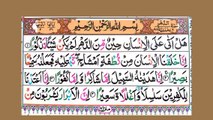 بِسْمِ اللّٰهِ الرَّحْمٰنِ الرَّحِيْمِ
هَلْ اَتٰى عَلَى الْاِنْسَانِ حِيْنٌ مِّنَ الدَّهْرِ لَمْ يَكُنْ شَيْئًا مَّذْكُوْرًا
اِنَّا خَلَقْنَا الْاِنْسَانَ مِنْ نُّطْفَةٍ اَمْشَاجٍ نَّبْتَلِيْهِ فَجَعَلْنٰهُ سَمِيْعًۢا
بَصِيْرًا اِنَّا هَدَيْنٰهُ السَّبِيْلَ اِمَّا شَاكِرًا وَّاِمَّا كَفُوْرًا اِنَّاۤ اَعْتَدْنَا
لِلْكٰفِرِيْنَ سَلٰسِلَا۠ وَاَغْلٰلًا وَّسَعِيْرًا اِنَّ الْاَبْرَارَ يَشْرَبُوْنَ